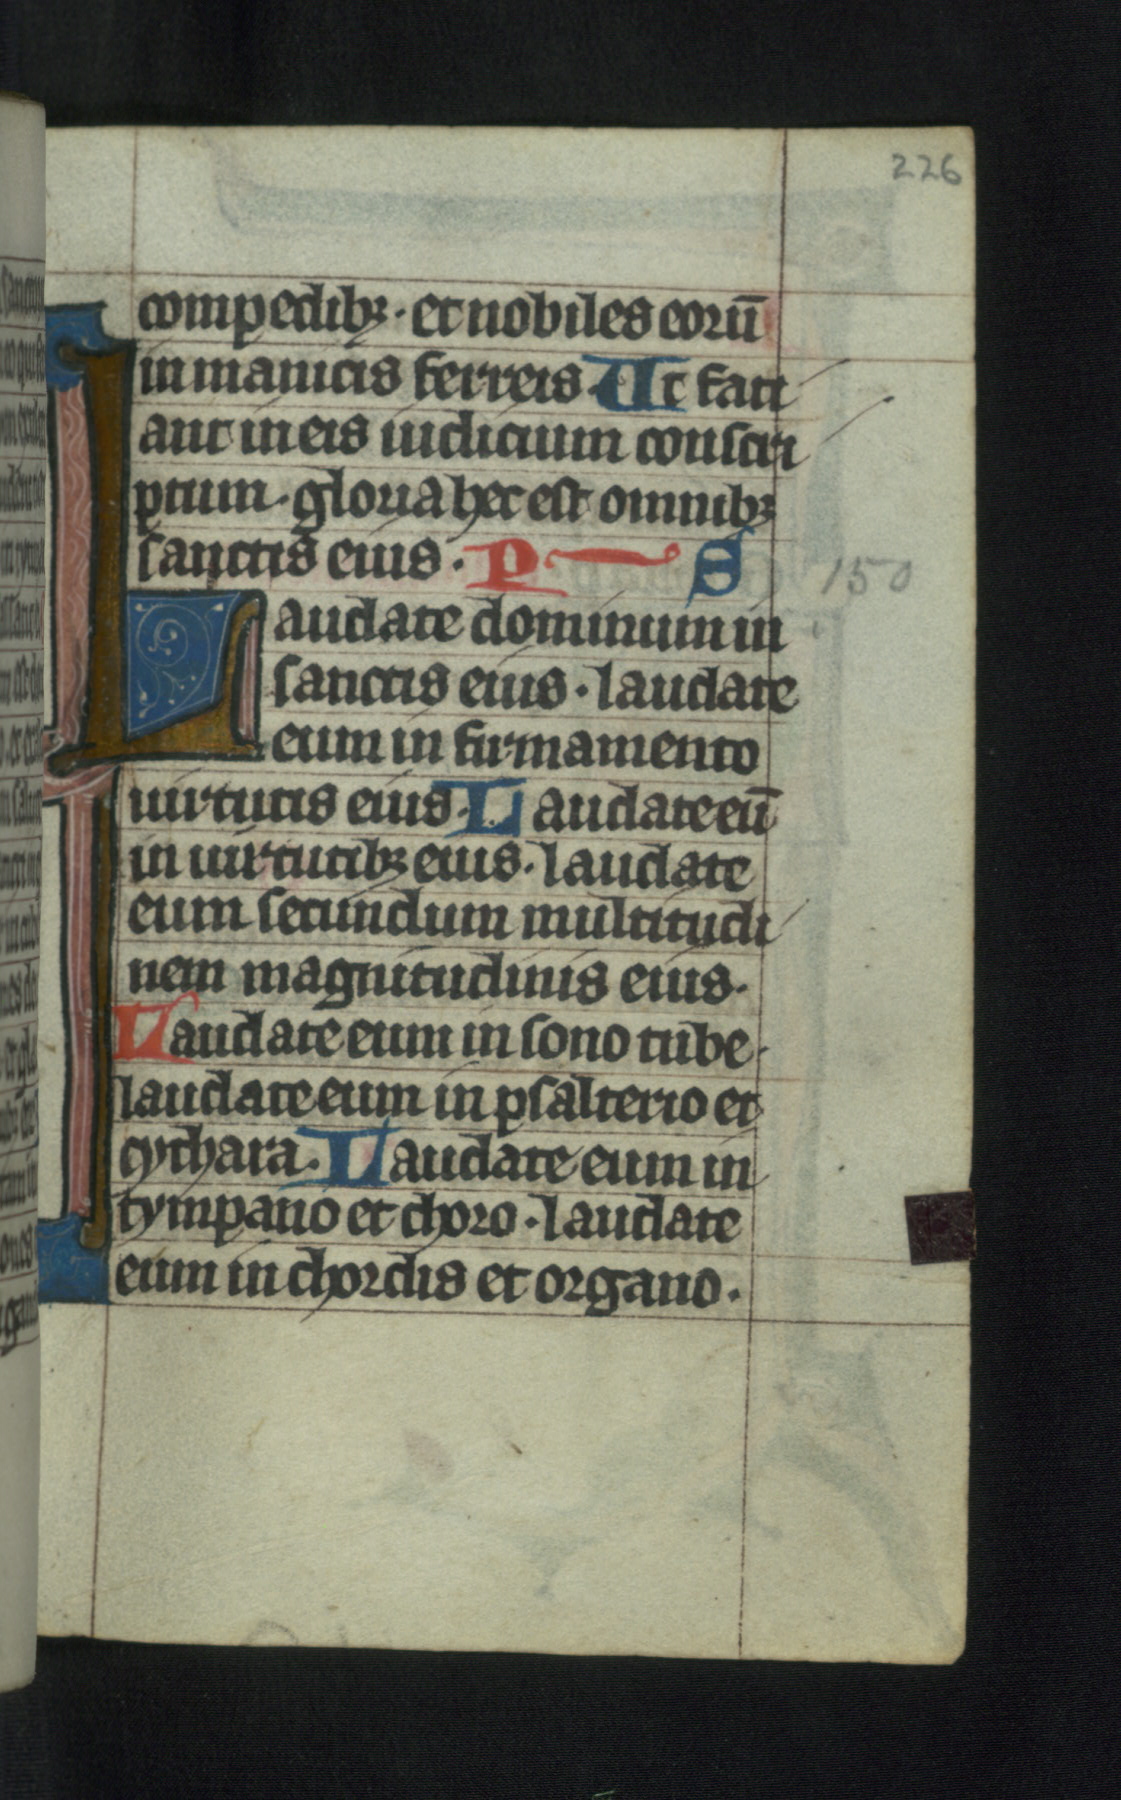 226
compedibꝫ · et nobiles eorū
in manicis ferreis · Ut faci
ant in eis iudicium conscri
ptum · gloria hec est omnibꝫ
sanctis eius · P S
150
Laudate dominum in
sanctis eius · laudate
eum in firmamento
uirtutis eius · Laudate eū
in uirtutibꝫ eius · laudate
eum secundum multitudi
nem magnitudinis eius ·
Laudate eum in sono tube ·
laudate eum in psalterio et
cythara · Laudate eum in
tympano et choro · laudate
eum in chordis et organo ·